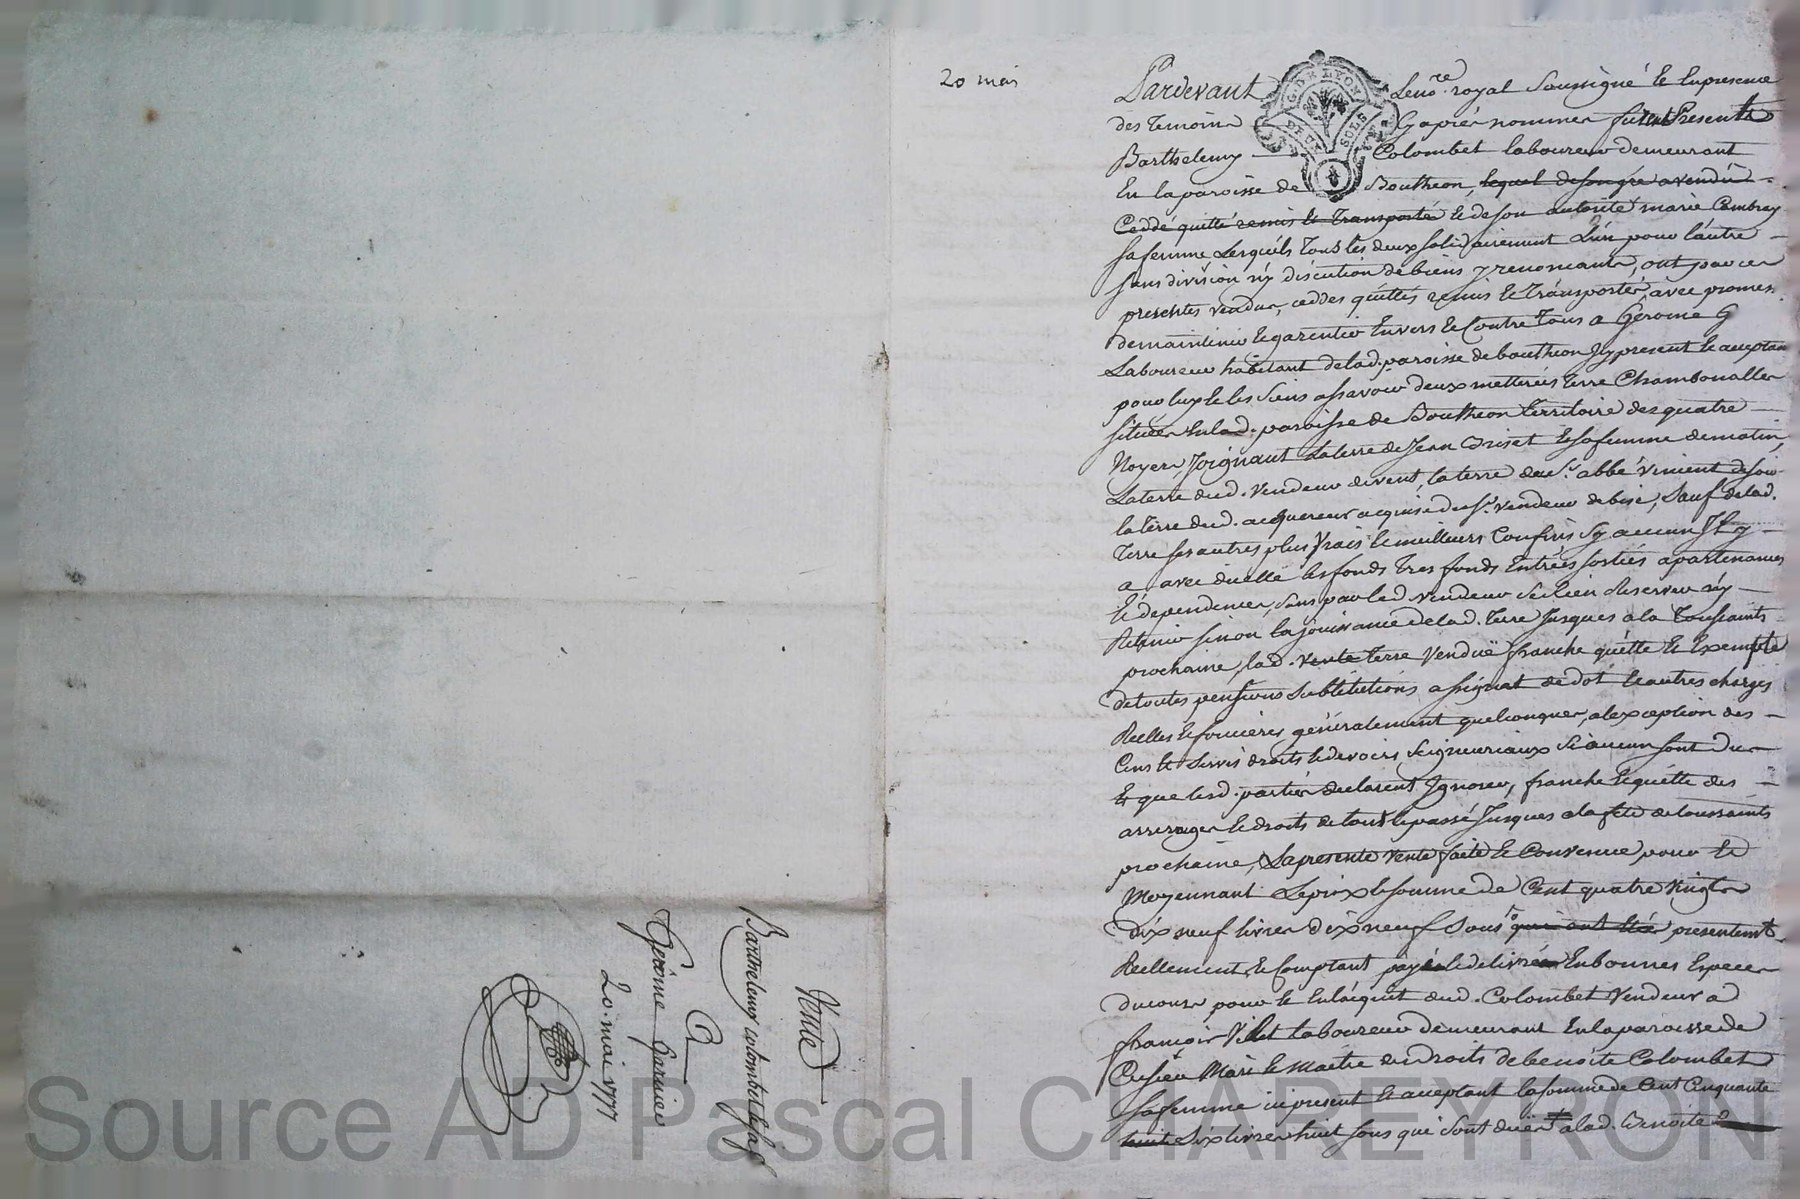 20 mai
Pardevant Le no.re royal Soussigné Et En presence
des Temoins Cy après nommes furent Presents
Barthelemy Colombet laboureur demeurant
En la paroisse de Boutheon, lequel de son gré a vendu
Ceddé quitté remis Et Transporté Et de son autorité marie Combrey
sa femme Lesquels Tous les deux solidairement L'un pour l'autre
sans division ny discution de biens y renonçants, ont par ces
presentes vendus, ceddes quittés remis Et Transportés, avec promesse
de maintenir Et garentir Envers Et Contre Tous a Gérome G
Laboureur habitant de lad. paroisse de boutheon Icy present Et acceptant
pour luy Et les Siens assavoir deux metterées terre Chambonalle
situées En lad. paroisse de Boutheon Territoire des quatre
Noyers, Joignant La terre de Jean Griset Et sa femme de matin,
La terre dud. Vendeur de vent, la terre du S.r abbé Vinient de soir
la Terre dud. acquereur acquise dud. vendeur de bise, Sauf de lad.
Terre ses autres plus Vrais Et meilleurs Confins Sy aucun Il y
a avec d'icelle les fonds Tres fonds Entrées sorties apartenances
Et dependences, sans par led vendeur Se Rien Reserver ny
Retenir sinon la jouissance de lad. Terre Jusques a la Toussaints
prochaine, lad. vente Terre Vendüe franche quitte Et Exempte
de toutes pensions Substitutions assignat de dot Et autres charges
Réelles Et foncieres, généralement quelconques, a lexception des
Cens Et Servis droits Et devoirs Seigneuriaux Si aucun sont dus
Et que lesd. parties declarent Ignorer, franche Et quitte des
arrerages Et droits de tout le passé Jusques a la fete de toussaints
prochaine, La presente Vente faite Et Convenue pour Et
Moyennant Le prix Et somme de Cent quatre Vingts
dix neuf livres dix neuf Sous qui ont été presentement
Réellement Et Comptant payé Et delivré En bonnes Especes
du cours pour Et En l'acquit dud. Colombet Vendeur a
françois Vilet laboureur demeurant En la paroisse de
Cuzieu Mari Et Maitre des droits de benoite Colombet
sa femme ici present Et acceptant la somme de Cent Cinquante
huit Six livres huit sous qui sont dües a lad. Benoite
Vente
Barthelemy colombet Et sa f.
A
Gerôme Garnier
20. mai 1777
G. DE LYON
DEUX SOLS
Source AD Pascal CHAREYRON